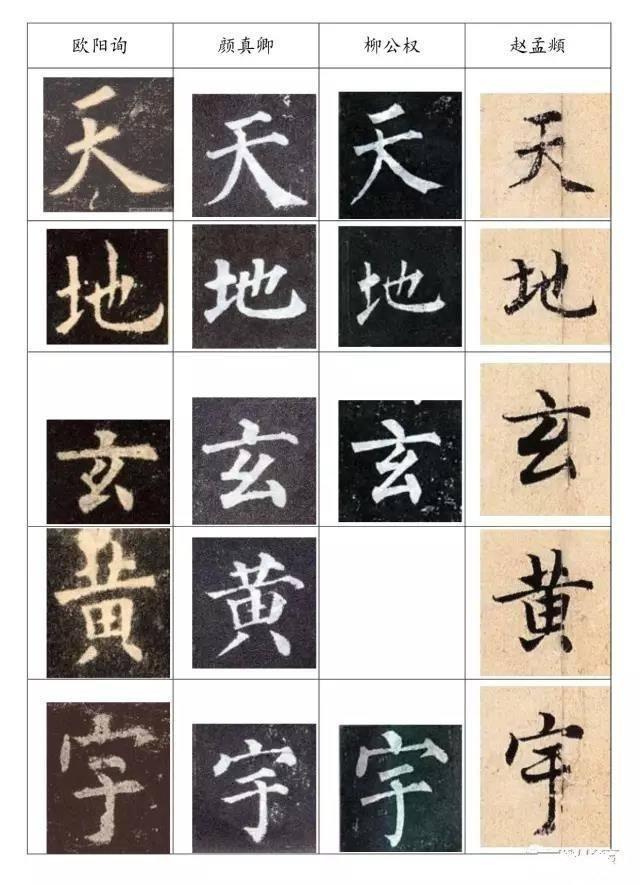 欧阳询 颜真卿 柳公权 赵孟頫
天 天 天 天
地 地 地 地
玄 玄 玄 玄
黄 黄 黄
宇 宇 宇 宇